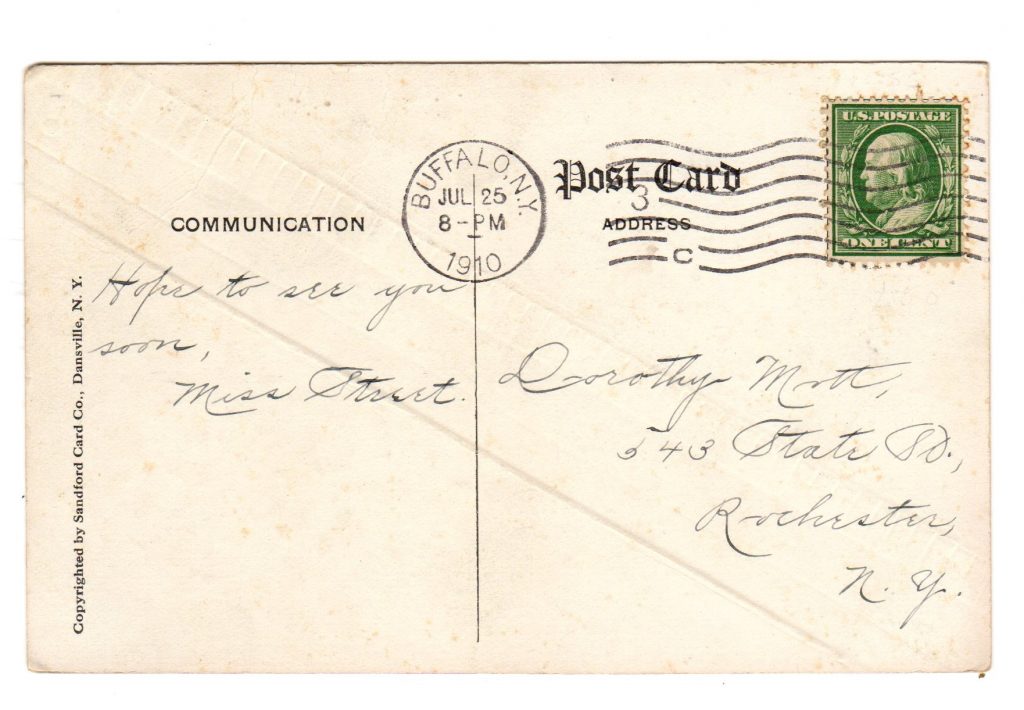 Post Card
COMMUNICATION
ADDRESS
BUFFALO, N.Y.
JUL 25
8-PM
1910
3
C
U.S. POSTAGE
ONE CENT
Hope to see you
soon,
Miss Street.
Dorothy Mott,
543 State St.,
Rochester,
N. Y.
Copyrighted by Sandford Card Co., Dansville, N. Y.